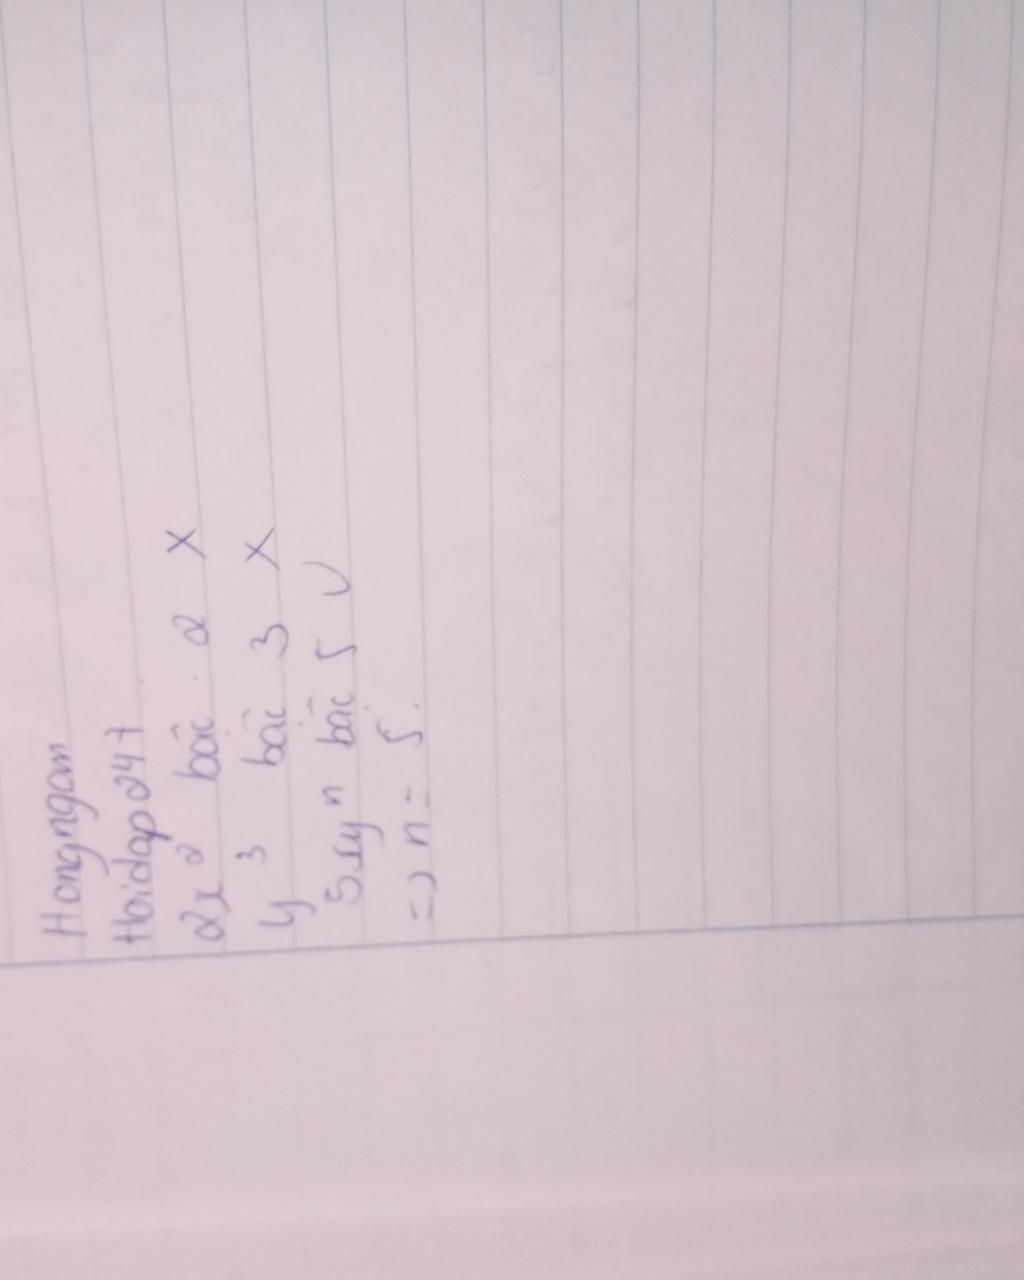 Hongngam
Hoidap247
2x² bậc 2 X
y³ bậc 3 X
5xyⁿ bậc 5 V
=> n = 5.